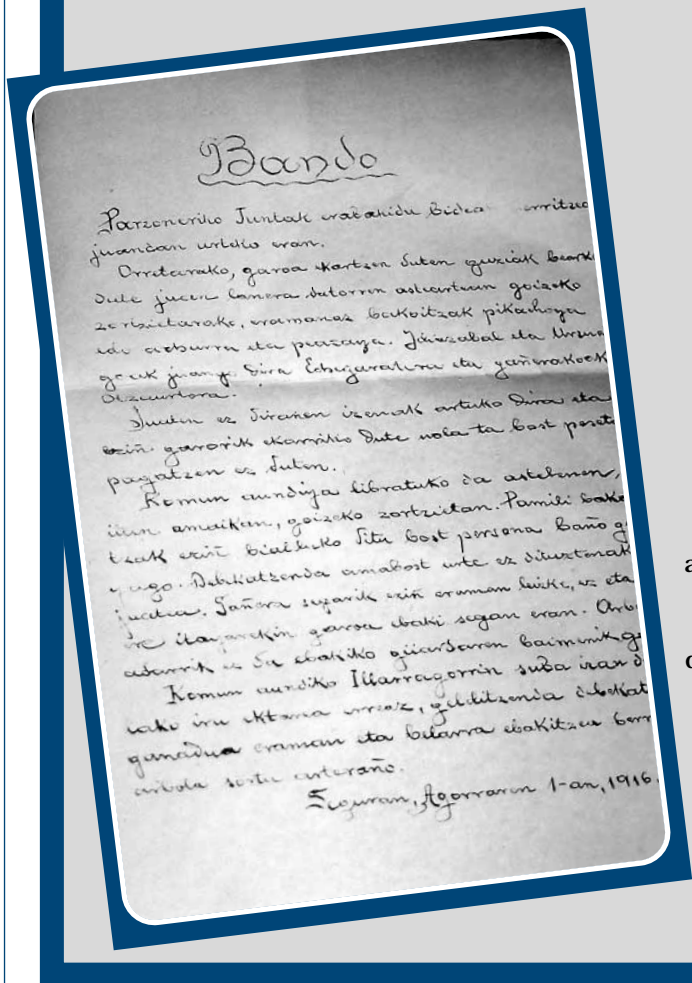 Bando
Parzoneriko Juntak erabakidu bidea erritzea
juandan urteko eran.
Orretarako, garoa ekartzen duten guziak beark
dute juen lanera datorren asteartean goizeko
zortzietarako, eramanaz bakoitzak pikachoya
edo acburra eta pazaya. Idiazabal eta Urzua
goak juango dira Echegaratera eta gañerakoek
Otzaurtera.
Juaten ez diranen izenak artuko dira eta
eziñ garorik ekarriko dute nola ta bost pezet
pagatzen ez duten.
Komun aundiya libratuko da astelenen,
illun amaikan, goizeko zortzietan. Pamili bako
tzak eziñ bialduko ditu bost persona baño g
yago. Debekatzenda amabost urte ez dituztenak
juatea. Gañera suzarik eziñ eraman leizke, ez eta
ere itayarekin garoa ebaki segan eran. Arb
adarrik ez da ebakiko guardaren baimenik g
Komun aundiko Illarragorrin suba izan d
lako iru ektarea erreaz, gelditzenda debekat
ganadua eraman eta belarra ebakitzea berr
arbola sortu arteraño.
Seguran, Agorraren 1-an, 1916.
a